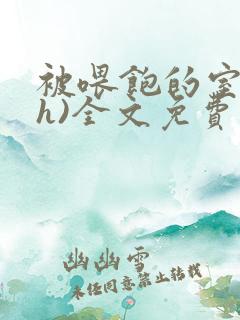 被喂飽的室
h)全文免費
幽幽雪
未经同意禁止转载